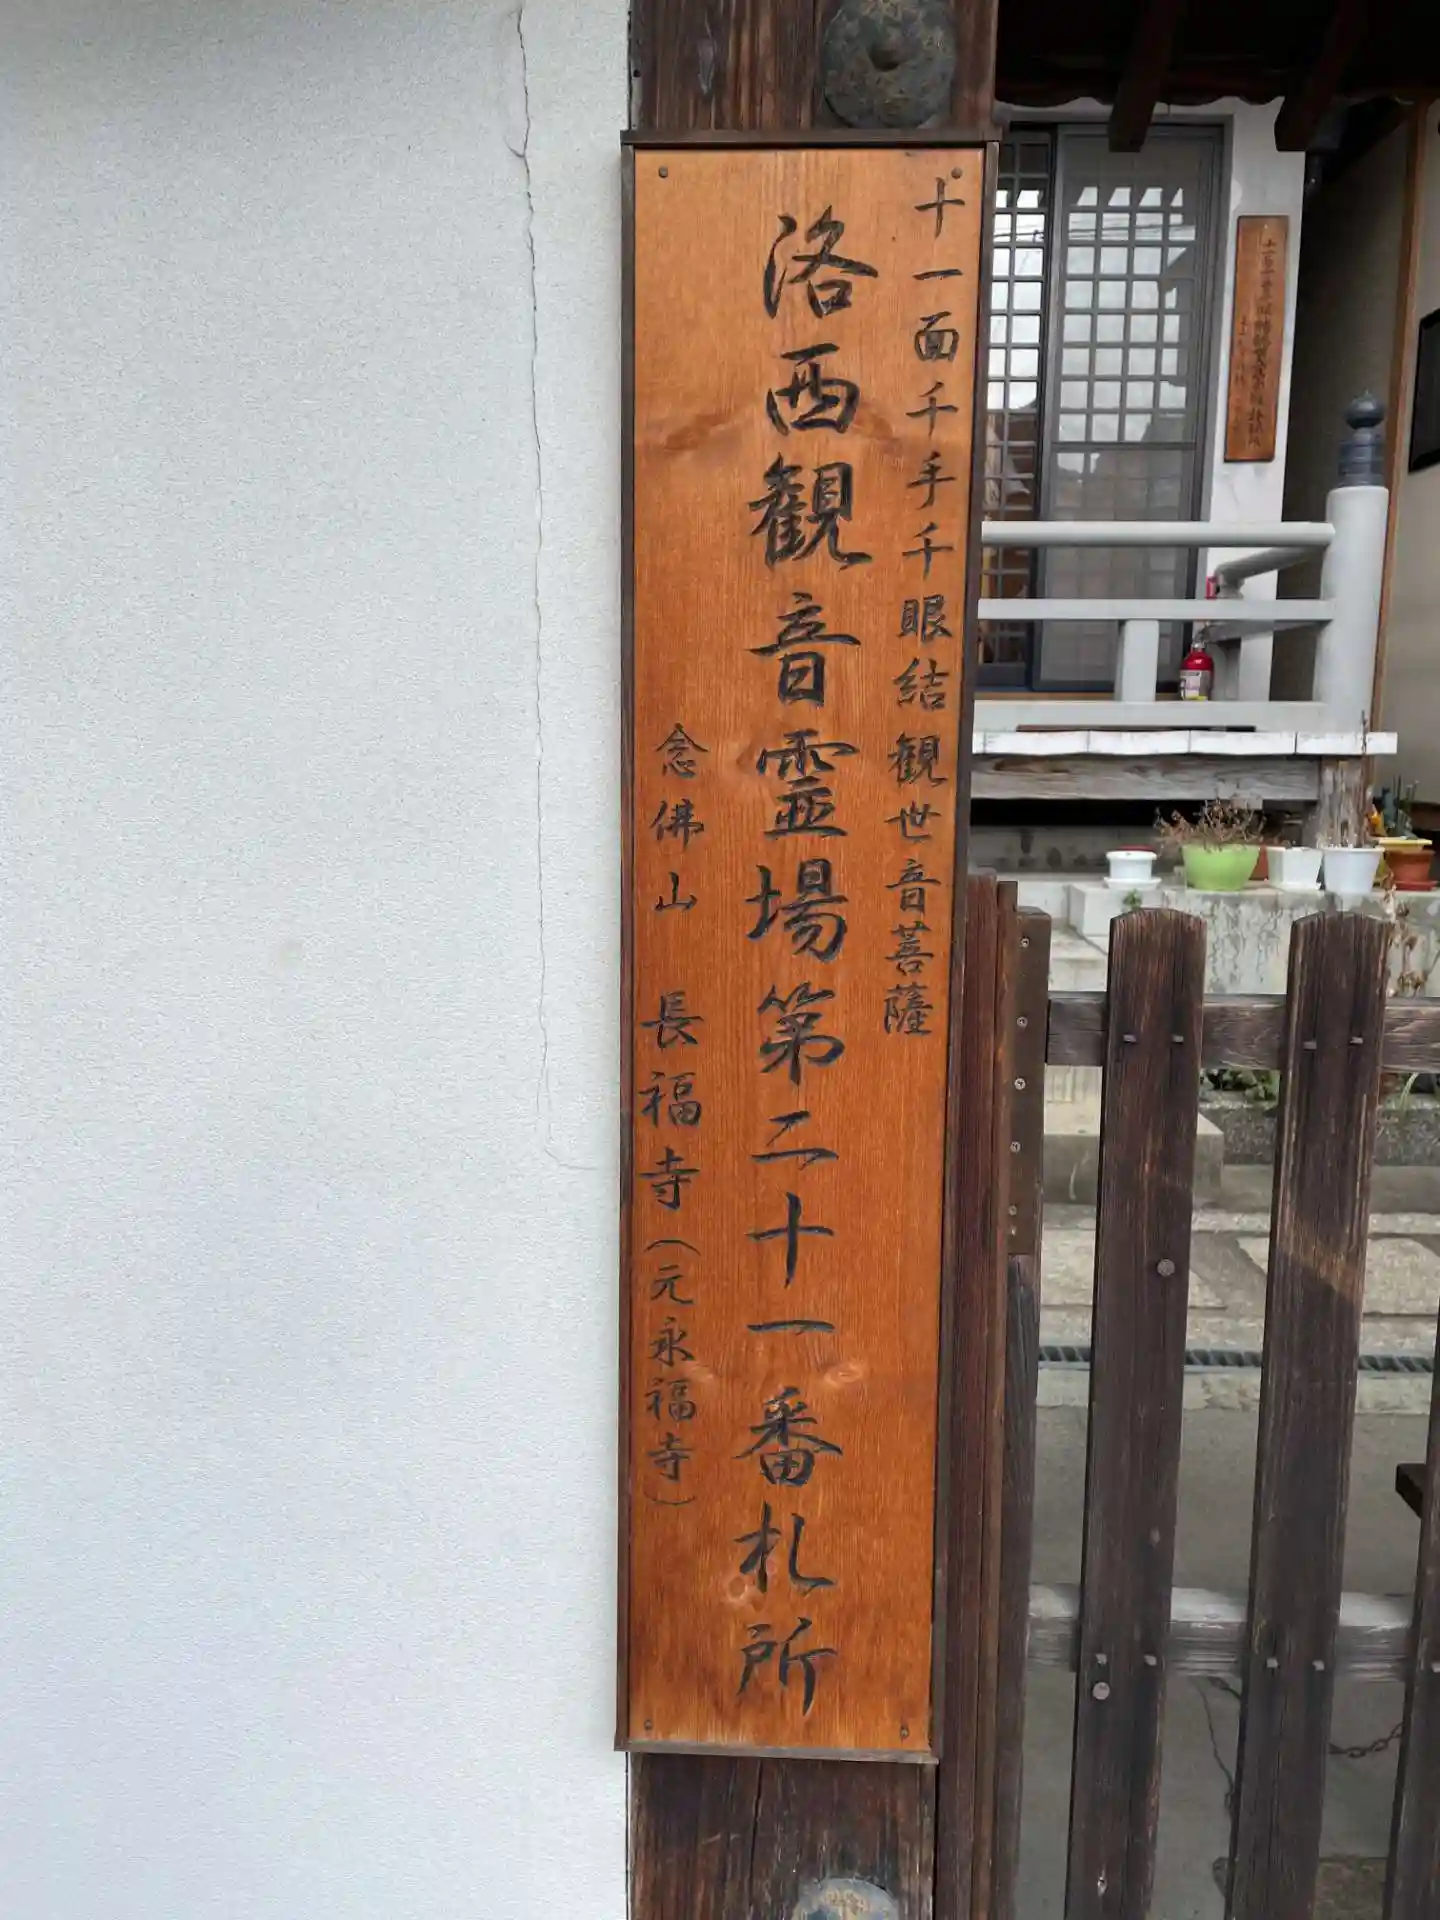 十一面千手千眼結観世音菩薩
洛西観音霊場第二十一番札所
念佛山 長福寺(元永福寺)